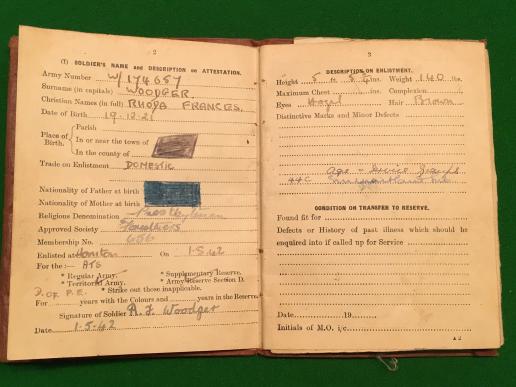 2
(I) SOLDIER'S NAME and DESCRIPTION on ATTESTATION.
Army Number W/174657
Surname (in capitals) WOODGER.
Christian Names (in full) RHODA FRANCES.
Date of Birth 19.12.21
Place of Birth.
Parish
In or near the town of
In the county of
Trade on Enlistment DOMESTIC
Nationality of Father at birth
Nationality of Mother at birth
Religious Denomination Presbyterian
Approved Society Foresters
Membership No. 656
Enlisted at Honiton On 1.5.42
For the :— ATS
* Regular Army. * Supplementary Reserve.
* Territorial Army. * Army Reserve Section D.
D. OF P.E. * Strike out those inapplicable.
For years with the Colours and years in the Reserve.
Signature of Soldier R. F. Woodger
Date 1.5.42
3
DESCRIPTION ON ENLISTMENT.
Height 5 ft. ins. Weight 140 lbs.
Maximum Chest ins. Complexion
Eyes Hazel Hair Brown
Distinctive Marks and Minor Defects
Age + Service Group
44C
CONDITION ON TRANSFER TO RESERVE.
Found fit for
Defects or History of past illness which should be
enquired into if called up for Service
Date 19
Initials of M.O. i/c
A 2